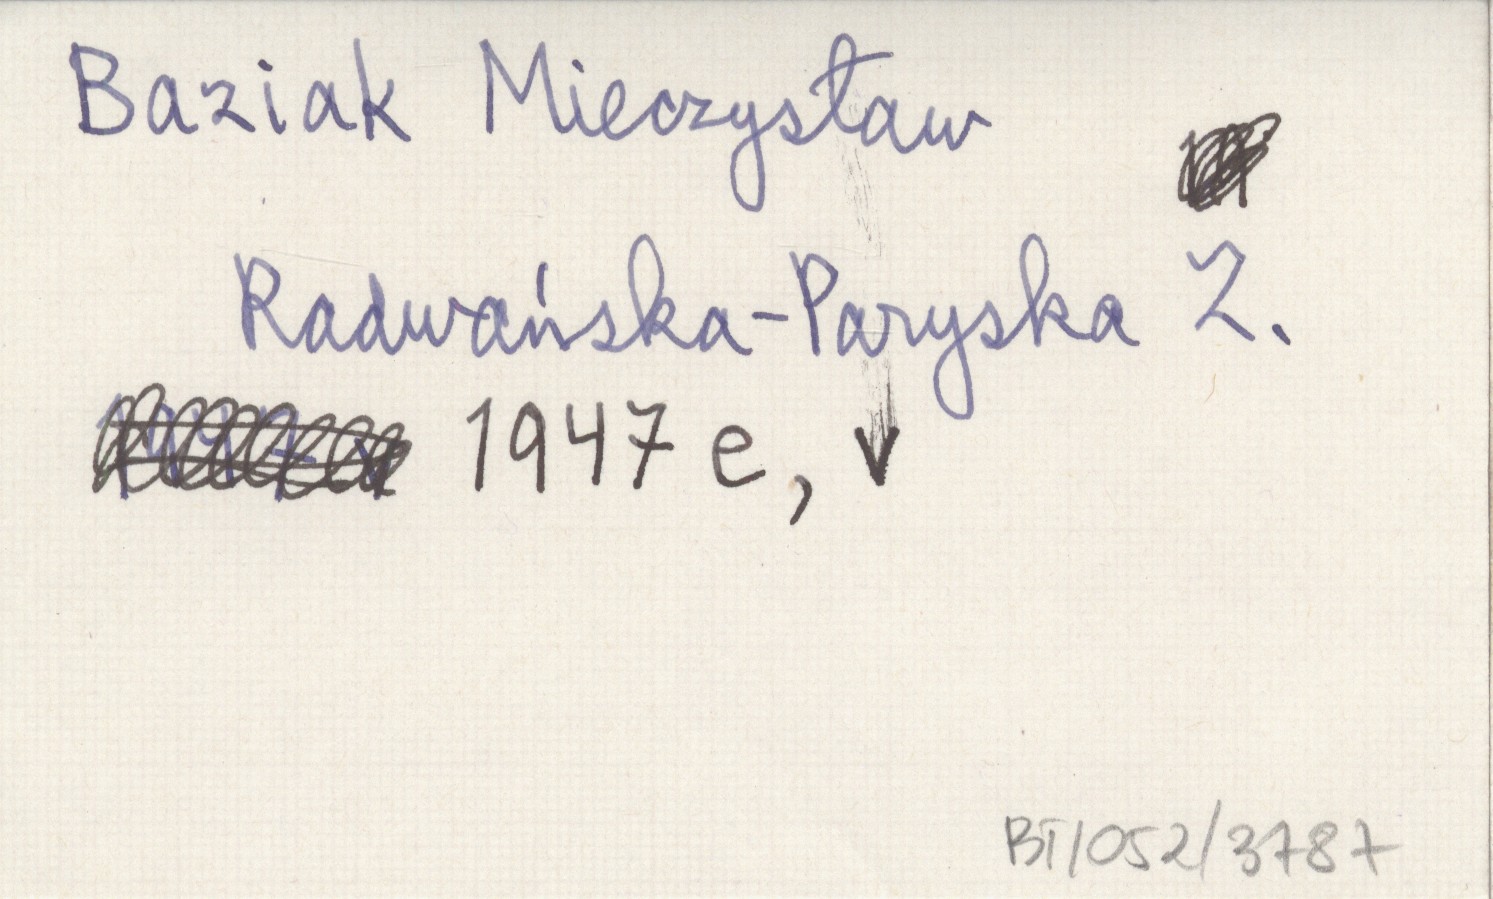 Baziak Mieczysław
Radwańska-Paryska Z.
1947 e, v
BT/052/3787